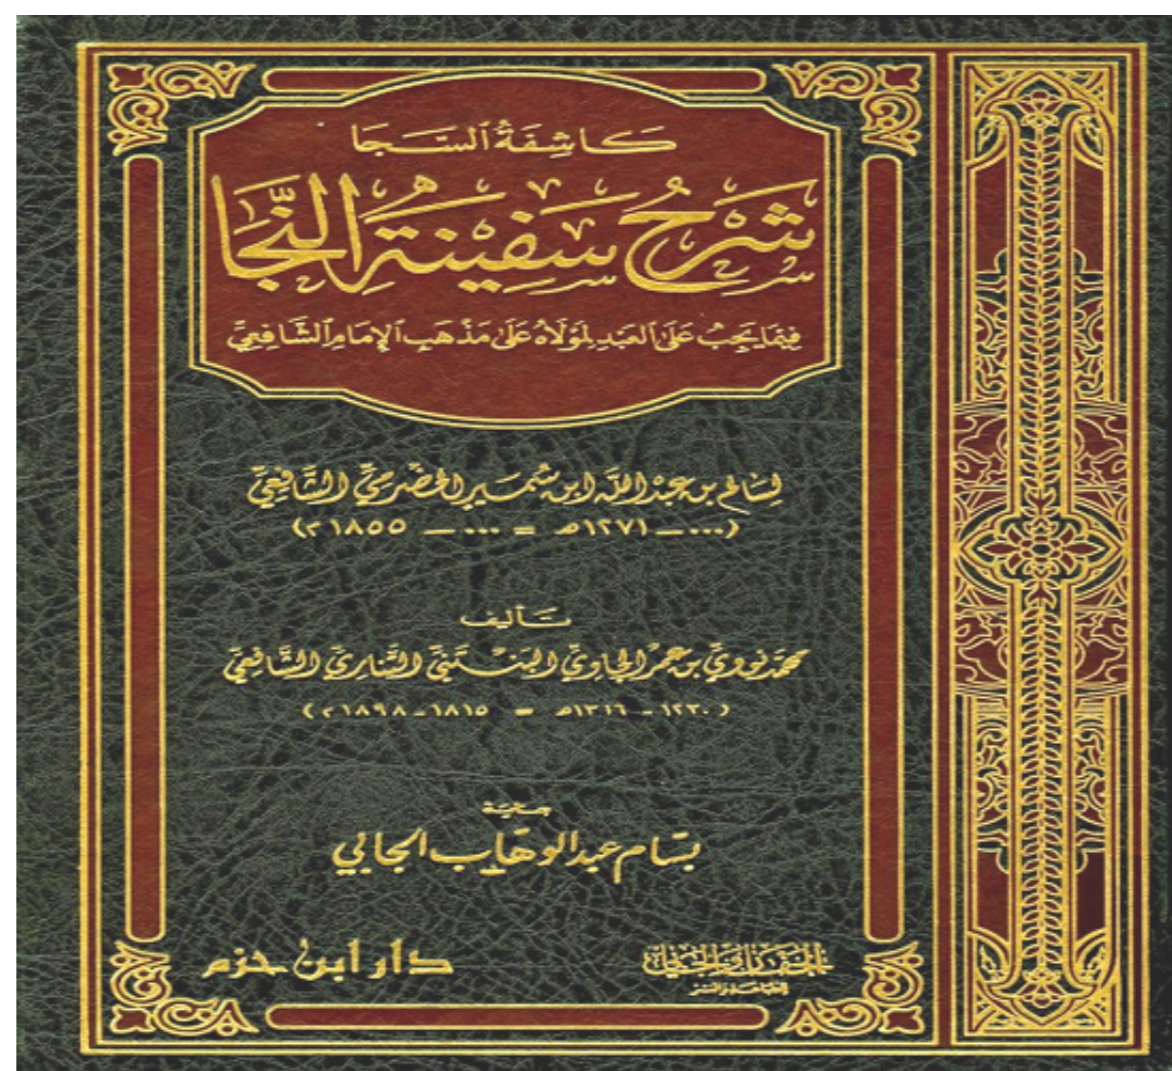 كَاشِفَةُ ٱلسَّجَا
شَرْحُ سَفِينَةِ النَّجَا
فِيمَا يَجِبُ عَلَى ٱلعَبْدِ لِمَوْلَاهُ عَلَى مَذْهَبِ ٱلإِمَامِ ٱلشَّافِعِيِّ
لسالم بن عبد الله ابن سمير الحضرميّ الشافعيّ
(... – ١٢٧١هـ = ... – ١٨٥٥م)
تأليف
محمد نوويّ بن عمر الجاويّ البنتنيّ التناريّ الشافعيّ
(١٢٣٠ – ١٣١٦هـ = ١٨١٥ – ١٨٩٨م)
بسام عبد الوهاب الجابي
الجفان والجابي
للطباعة والنشر
دار ابن حزم